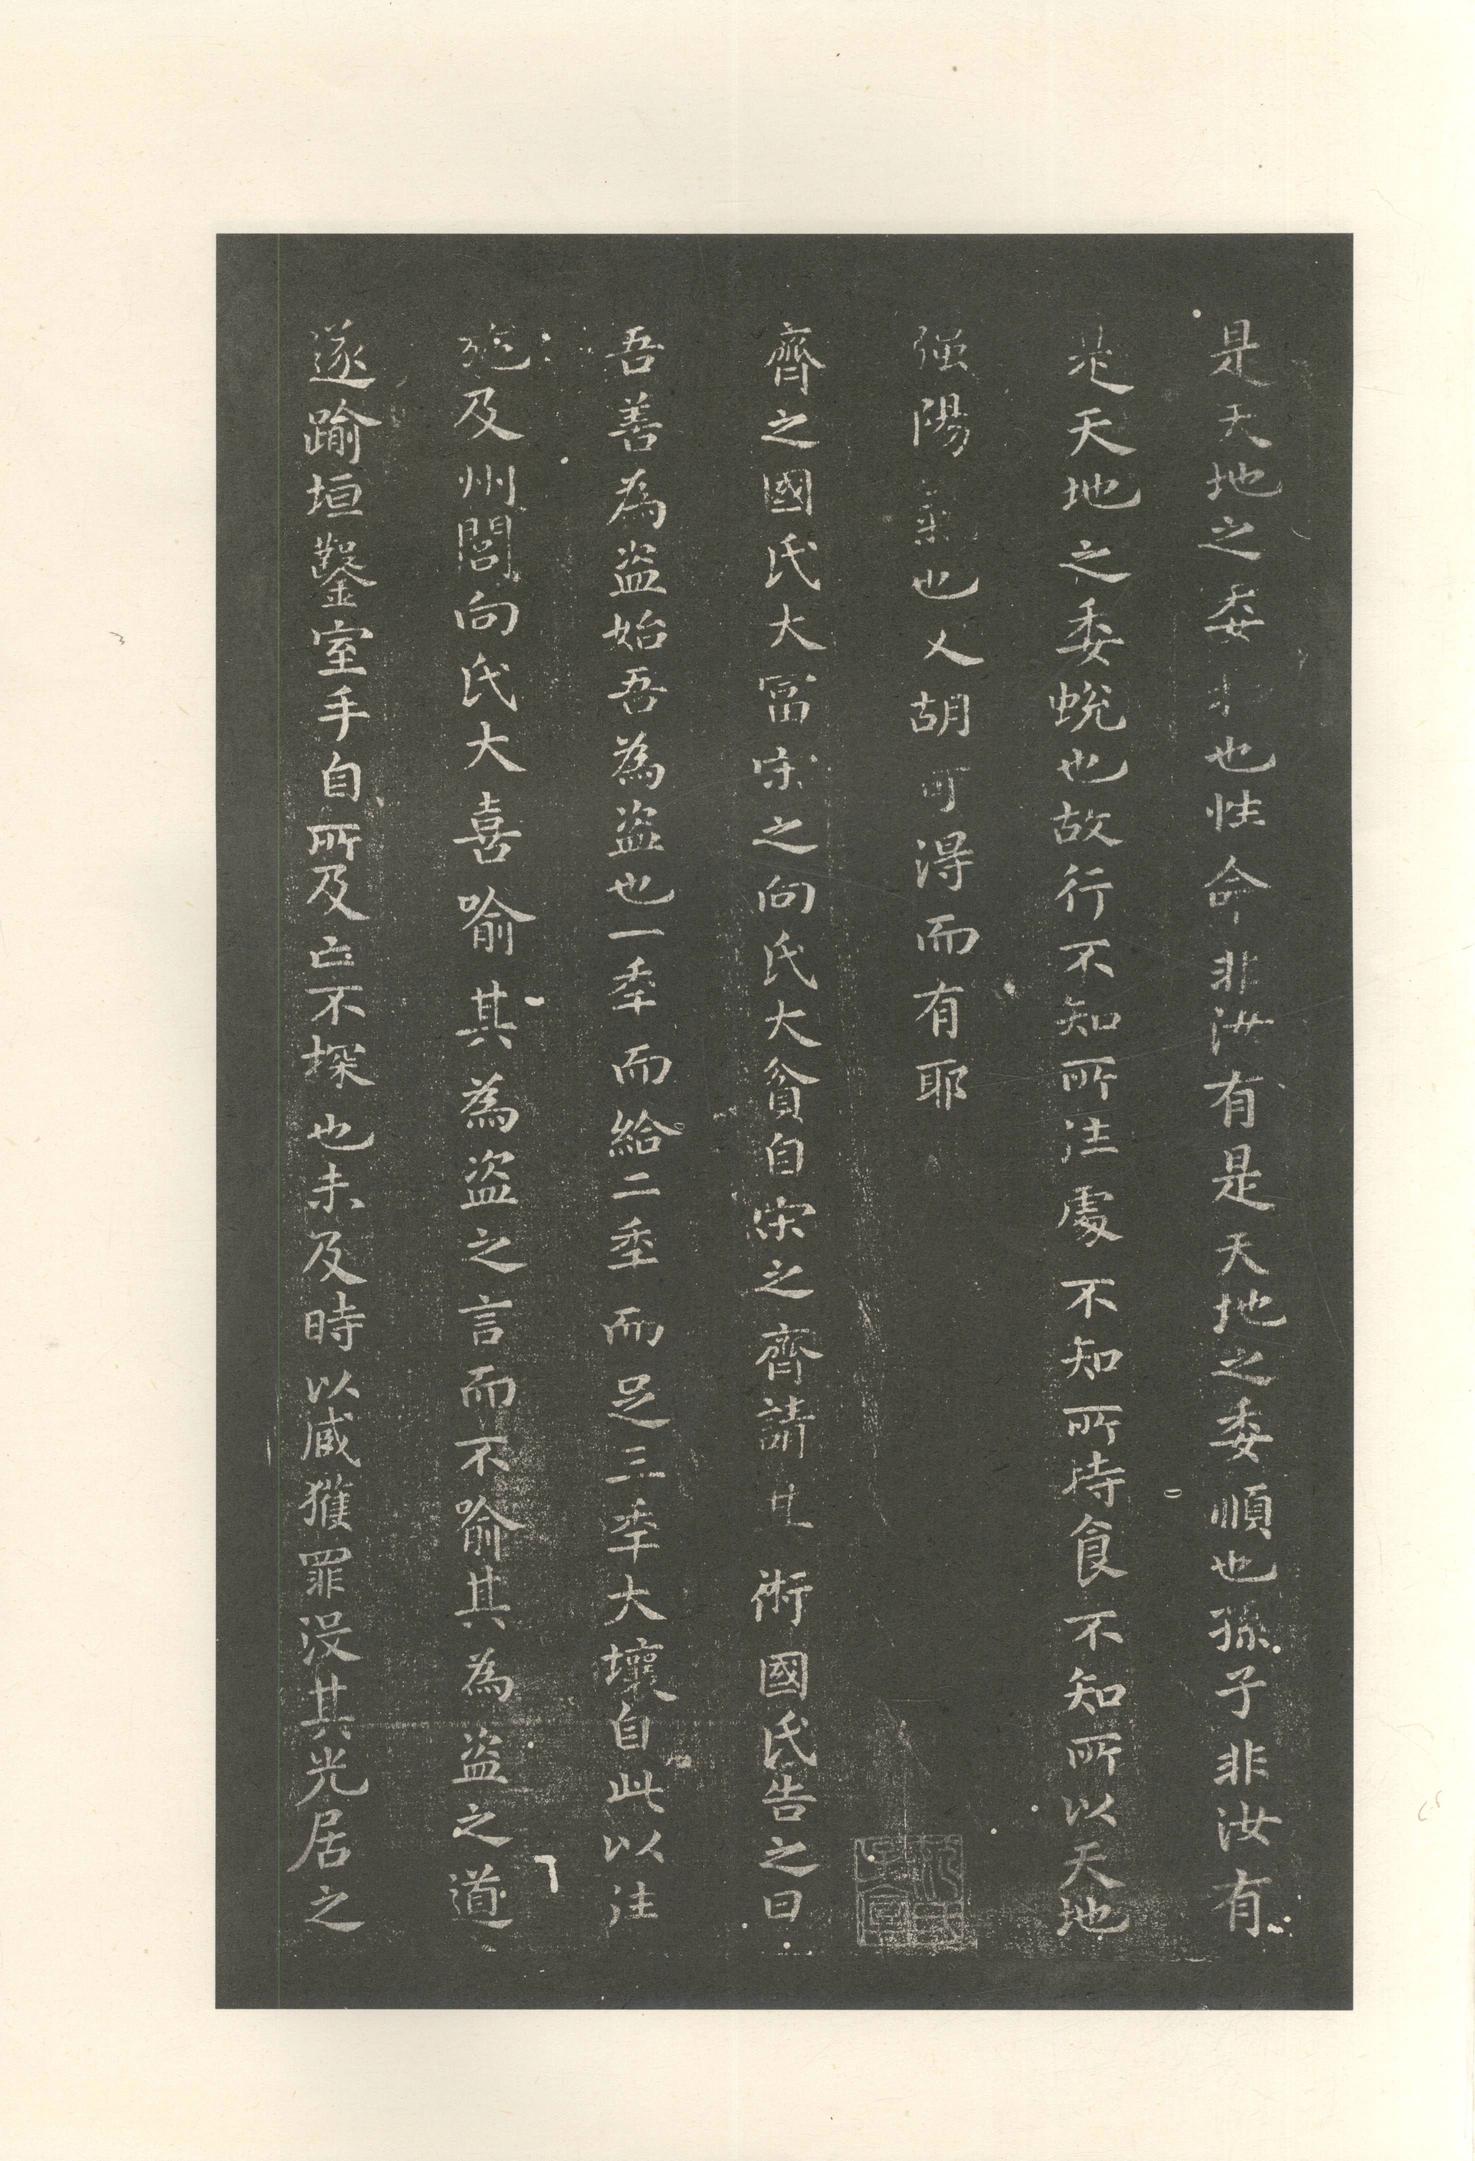 是天地之委和也性命非汝有是天地之委順也孫子非汝有
是天地之委蛻也故行不知所往處不知所持食不知所以天地
强陽氣也又胡可得而有耶
齊之國氏大富宋之向氏大貧自宋之齊請其術國氏告之曰
吾善為盜始吾為盜也一年而給二年而足三年大壤自此以往
施及州閭向氏大喜喻其為盜之言而不喻其為盜之道
遂踰垣鑿室手目所及亡不探也未及時以臧獲罪沒其先居之